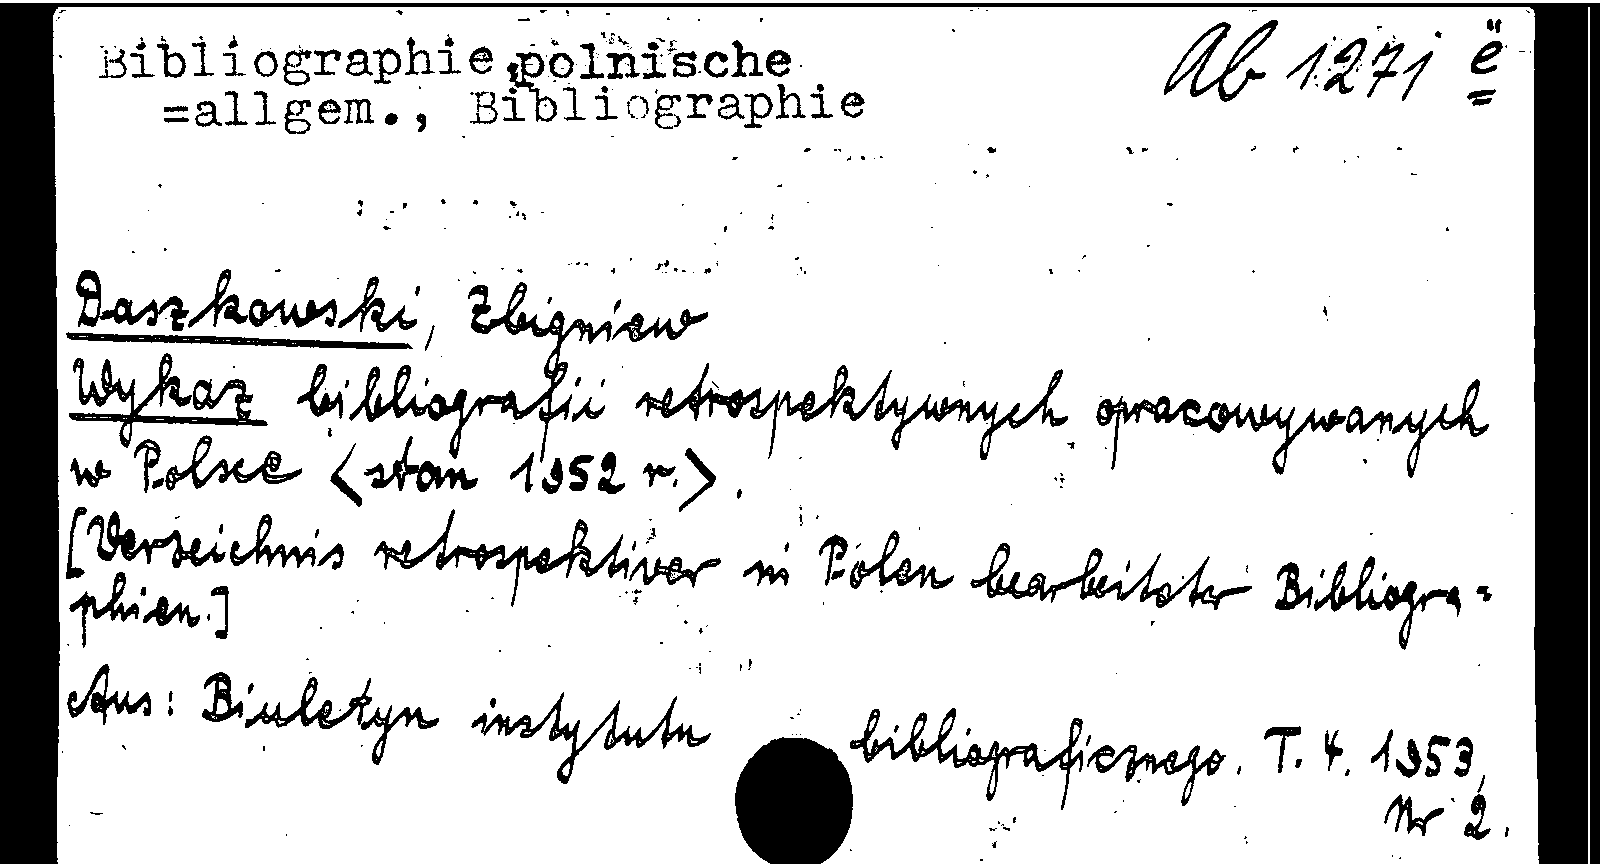 Bibliographie, polnische
=allgem., Bibliographie
Ab 1271 ë
Daszkowski, Zbigniew
Wykaz bibliografii retrospektywnych opracowywanych
w Polsce <stan 1952 r.>.
[Verzeichnis retrospektiver in Polen bearbeiteter Bibliogra=
phien.]
Aus: Biuletyn instytutu bibliograficznego. T. 4. 1953,
Nr 2.